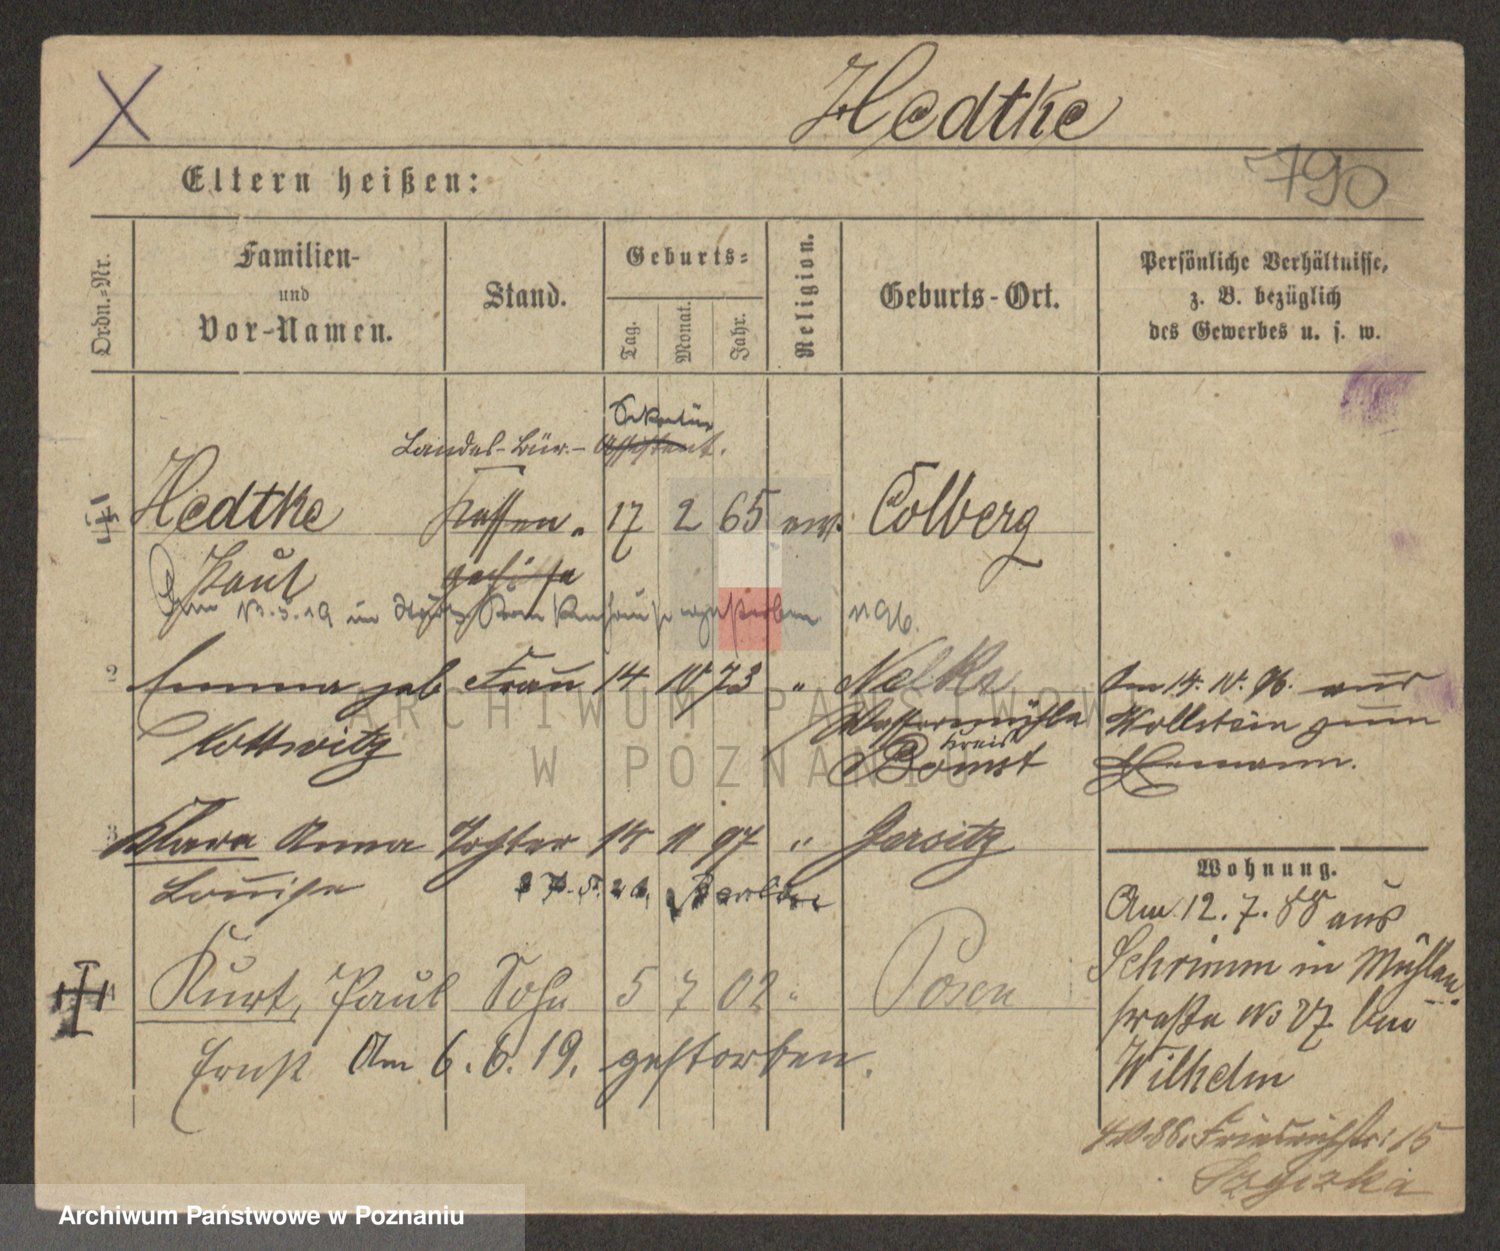 Hedtke
790
Eltern heißen:
Ordn.-Nr.
Familien-
und
Vor-Namen.
Stand.
Geburts-
Tag.
Monat.
Jahr.
Religion.
Geburts-Ort.
Persönliche Verhältnisse,
z. B. bezüglich
des Gewerbes u. s. w.
Sekretär
Landes-Bür.- Assistent.
Hedtke Kassen- 17 2 65 ev. Colberg
Paul gehilfe
13.5.19 im Krankenhause verstorben
2 Emma geb Frau 14 10 73 " Nelke
Wassermühle
Am 14. 10. 96. aus
Kottwitz
Kreis
Bomst
Wollstein zum
Ehemann.
3 Klara Anna Tochter 14 11 97 " Jersitz
Louise
Wohnung.
Am 12. 7. 88 aus
Schrimm in Mühlen-
straße No 27 bei
Wilhelm
4 Kurt, Paul Sohn 5 7 02 " Posen
Ernst Am 6. 6. 19. gestorben.
Friedrichstr. 15
ARCHIWUM PAŃSTWOWE
W POZNANIU
Archiwum Państwowe w Poznaniu